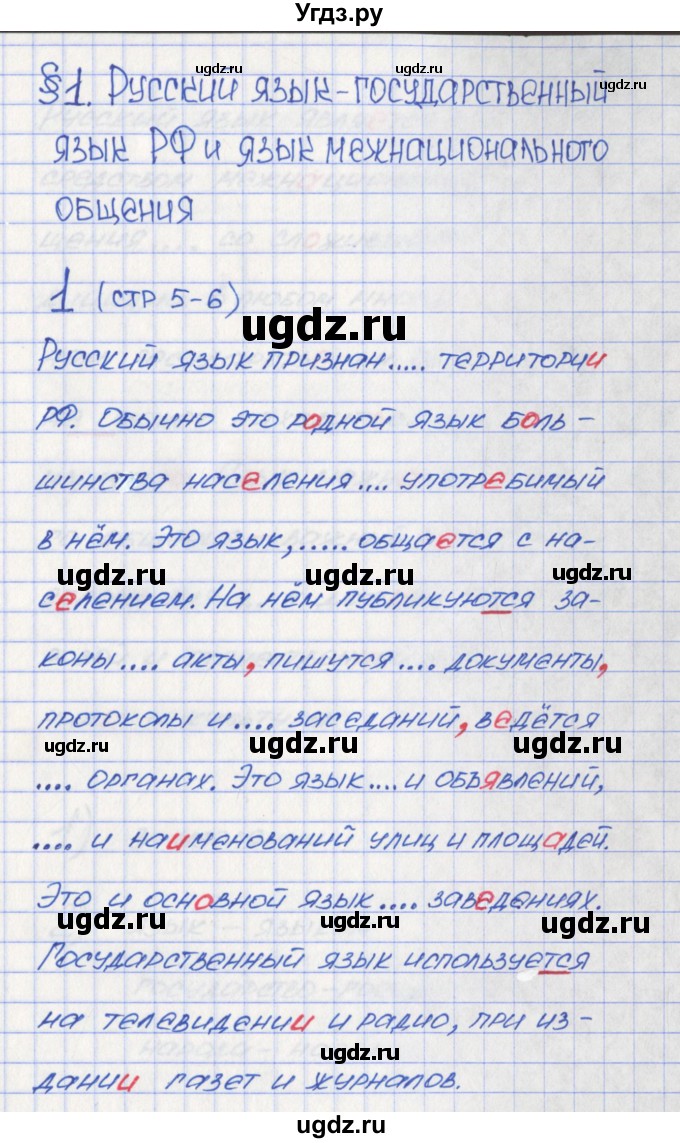 Угдз.ру
§1. Русский язык-государственный
язык РФ и язык межнационального
общения
1 (стр 5-6)
Русский язык признан..... территории
РФ. Обычно это родной язык боль-
шинства населения.... употребимый
в нём. Это язык, ..... общается с на-
селением. На нём публикуются за-
коны.... акты, пишутся.... документы,
протоколы и.... заседаний, ведётся
.... органах. Это язык.... и объявлений,
.... и наименований улиц и площадей.
Это и основной язык.... заведениях.
Государственный язык используется
на телевидении и радио, при из-
дании газет и журналов.
ugdz.ru